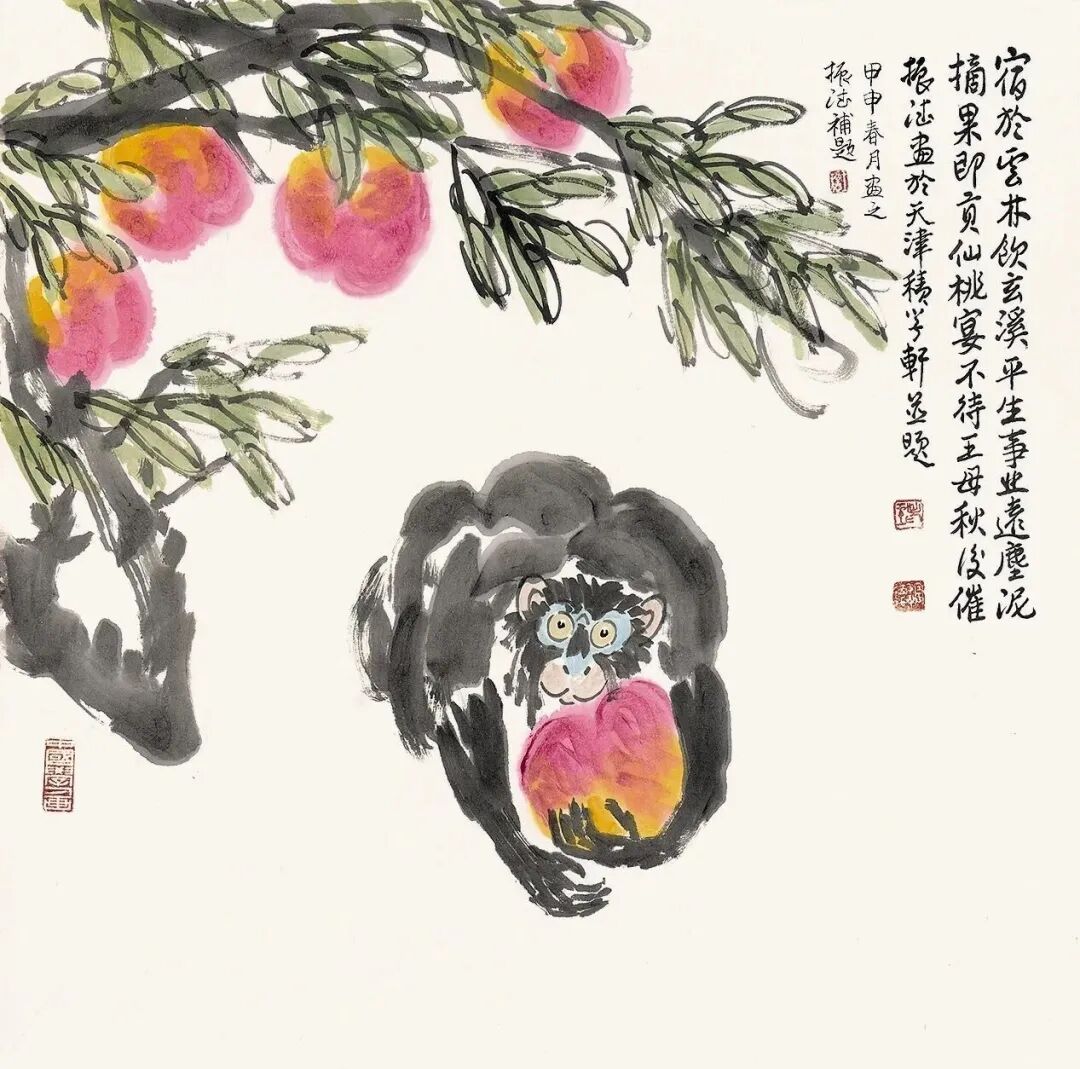 宿於雲林飲玄溪平生事业遠塵泥
摘果即貢仙桃宴不待王母秋後催
振法畫於天津積学軒並题
甲申春月畫之
振法補题